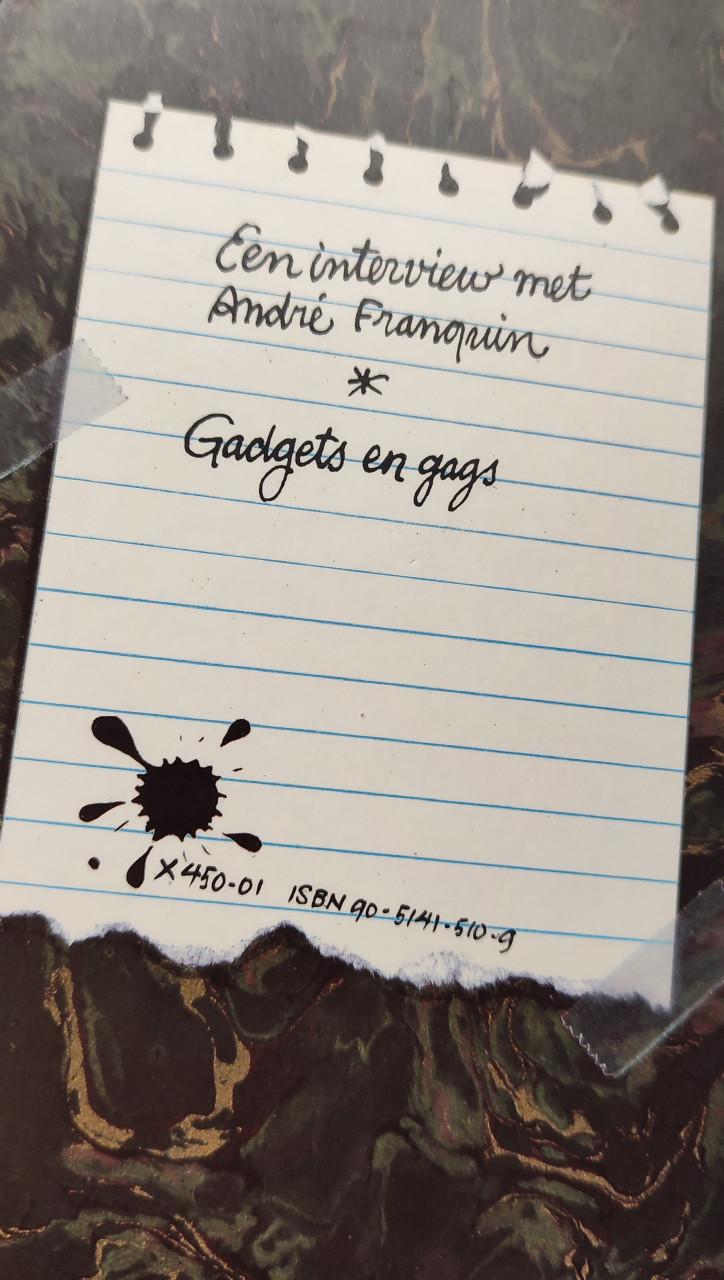 Een interview met
André Franquin
*
Gadgets en gags
X450-01 ISBN 90-5141-510-9